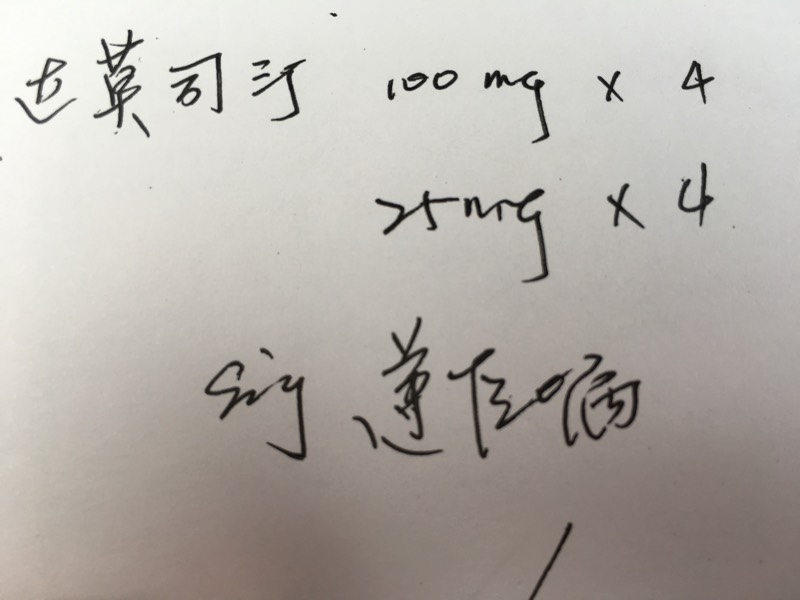 达英司汀 100 mg × 4
25mg × 4
sig 遵医嘱